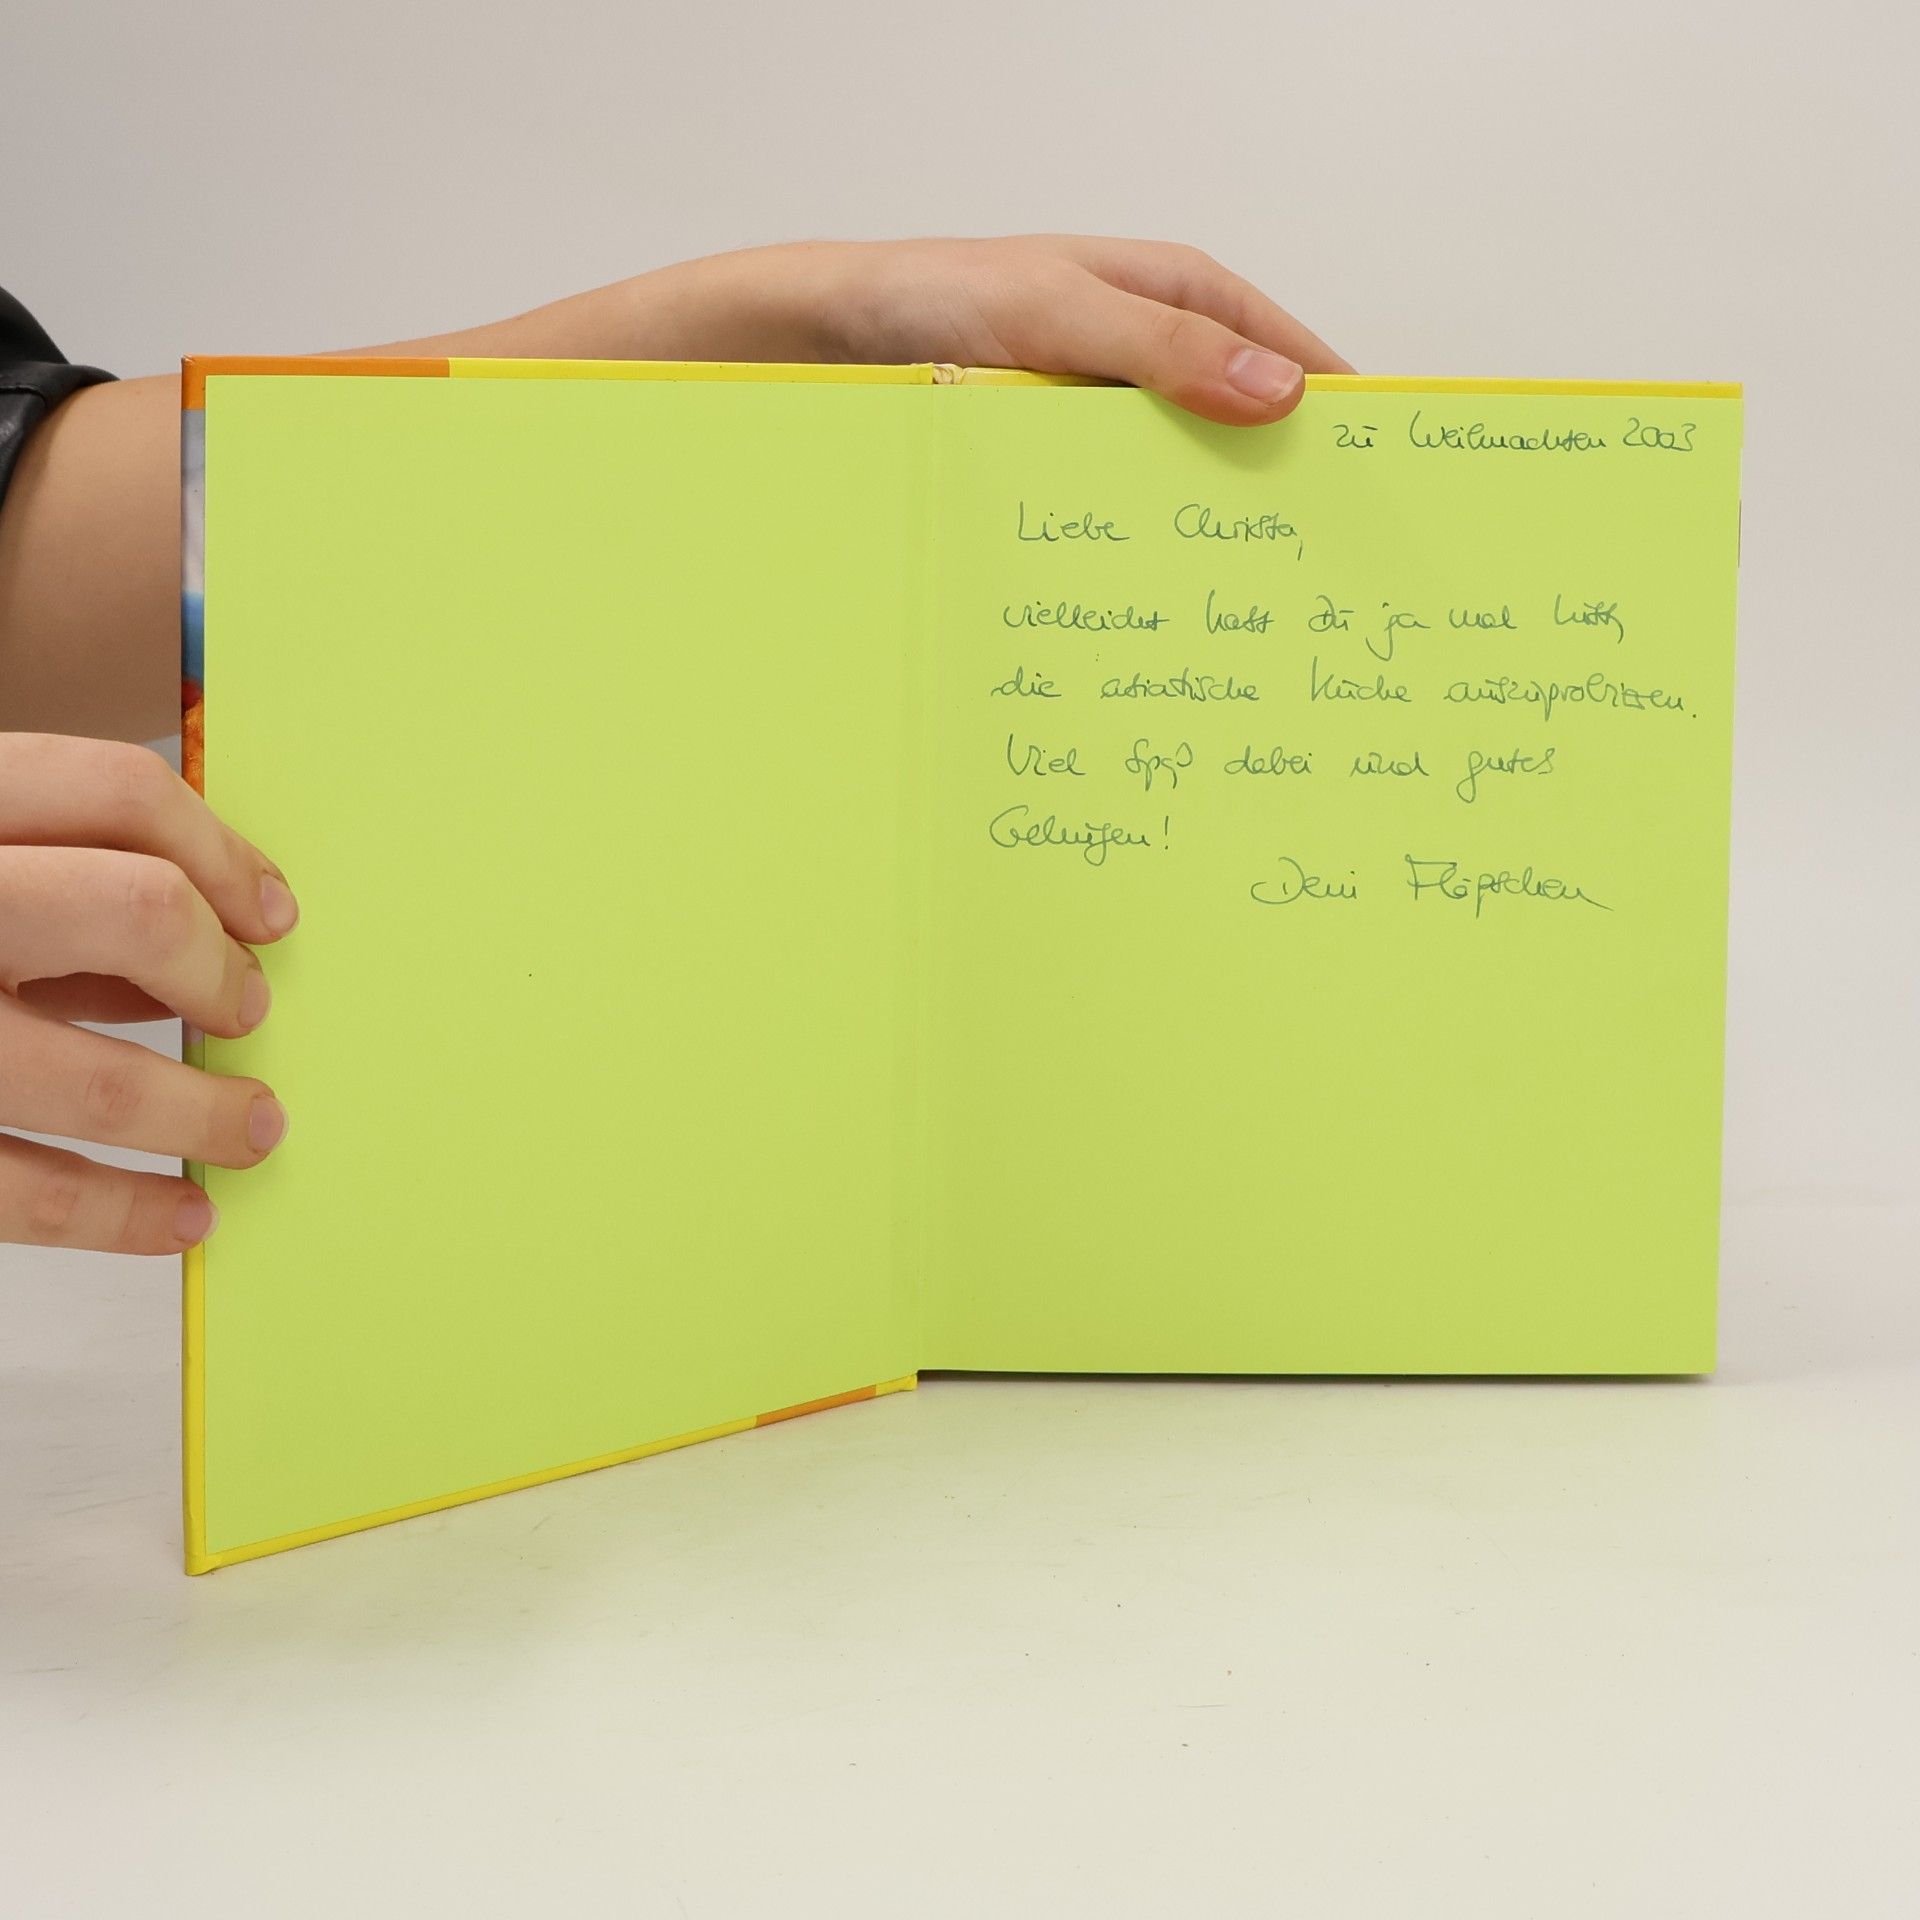 zu Weihnachten 2003
Liebe Christa,
vielleicht hast Du ja mal Lust,
die asiatische Küche auszuprobieren.
Viel Spaß dabei und gutes
Gelingen!
Dein Fläpschen